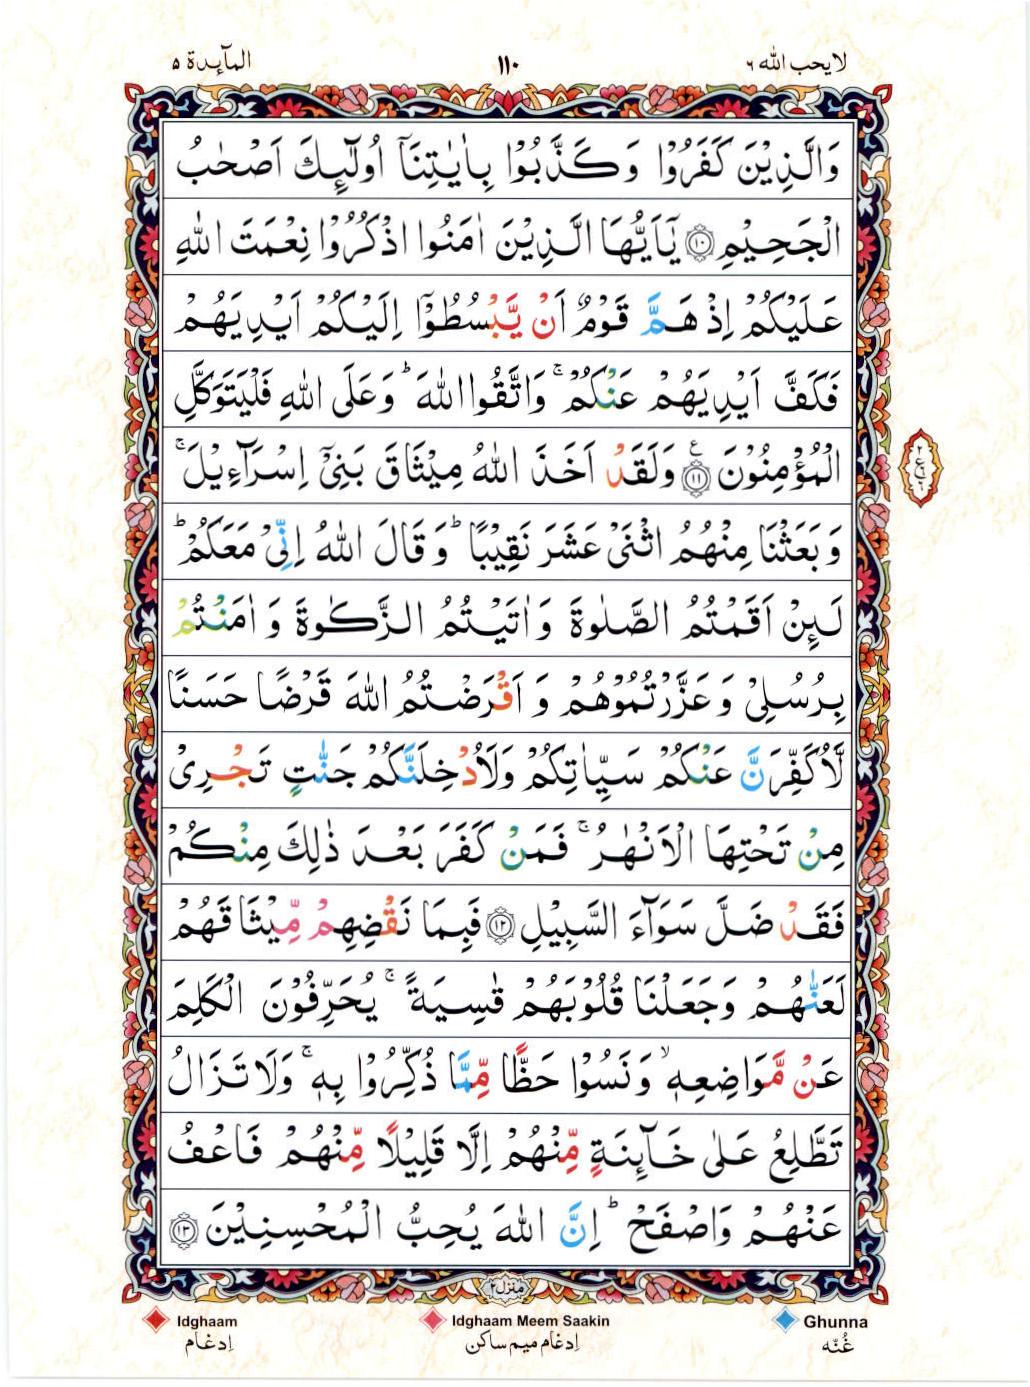 لا یحب الله ۶
۱۱۰
المآئدة ۵
وَالَّذِیْنَ كَفَرُوْا وَكَذَّبُوْا بِاٰیٰتِنَاۤ اُولٰٓئِكَ اَصْحٰبُ
الْجَحِیْمِ ۝۱۰ یٰۤاَیُّهَا الَّذِیْنَ اٰمَنُوا اذْكُرُوْا نِعْمَتَ اللّٰهِ
عَلَیْكُمْ اِذْ هَمَّ قَوْمٌ اَنْ یَّبْسُطُوْۤا اِلَیْكُمْ اَیْدِیَهُمْ
فَكَفَّ اَیْدِیَهُمْ عَنْكُمْ ۚ وَاتَّقُوا اللّٰهَ ؕ وَعَلَی اللّٰهِ فَلْیَتَوَكَّلِ
الْمُؤْمِنُوْنَ ۝۱۱ ع وَلَقَدْ اَخَذَ اللّٰهُ مِیْثَاقَ بَنِیْۤ اِسْرَآءِیْلَ ۚ
وَبَعَثْنَا مِنْهُمُ اثْنَیْ عَشَرَ نَقِیْبًا ؕ وَقَالَ اللّٰهُ اِنِّیْ مَعَكُمْ ؕ
لَىِٕنْ اَقَمْتُمُ الصَّلٰوةَ وَاٰتَیْتُمُ الزَّكٰوةَ وَاٰمَنْتُمْ
بِرُسُلِیْ وَعَزَّرْتُمُوْهُمْ وَاَقْرَضْتُمُ اللّٰهَ قَرْضًا حَسَنًا
لَّاُكَفِّرَنَّ عَنْكُمْ سَیِّاٰتِكُمْ وَلَاُدْخِلَنَّكُمْ جَنّٰتٍ تَجْرِیْ
مِنْ تَحْتِهَا الْاَنْهٰرُ ۚ فَمَنْ كَفَرَ بَعْدَ ذٰلِكَ مِنْكُمْ
فَقَدْ ضَلَّ سَوَآءَ السَّبِیْلِ ۝۱۲ فَبِمَا نَقْضِهِمْ مِّیْثَاقَهُمْ
لَعَنّٰهُمْ وَجَعَلْنَا قُلُوْبَهُمْ قٰسِیَةً ۚ یُحَرِّفُوْنَ الْكَلِمَ
عَنْ مَّوَاضِعِهٖ ۙ وَنَسُوْا حَظًّا مِّمَّا ذُكِّرُوْا بِهٖ ۚ وَلَا تَزَالُ
تَطَّلِعُ عَلٰی خَآئِنَةٍ مِّنْهُمْ اِلَّا قَلِیْلًا مِّنْهُمْ فَاعْفُ
عَنْهُمْ وَاصْفَحْ ؕ اِنَّ اللّٰهَ یُحِبُّ الْمُحْسِنِیْنَ ۝۱۳
منزل ۲
Idghaam
Idghaam Meem Saakin
Ghunna
اِدغام
اِدغام میم ساکن
غُنّه